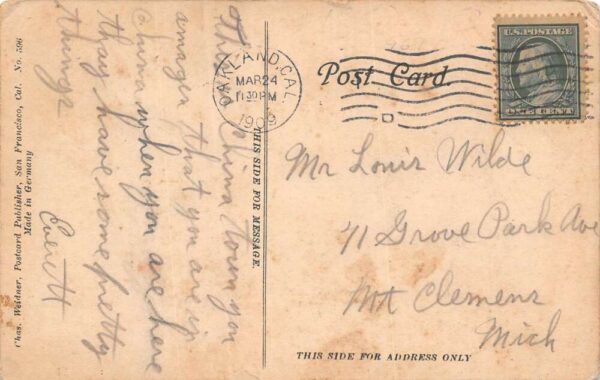 Thru China town you
amagen that you are in
China when you are here
thay have some pretty
things
Everett
THIS SIDE FOR MESSAGE.
Chas. Weidner, Postcard Publisher, San Francisco, Cal. No. 596
Made in Germany
OAKLAND, CAL.
MAR 24
11 30 PM
1909
Post Card.
U.S. POSTAGE
ONE CENT
Mr Louis Wilde
71 Grove Park Ave
Mt Clemens
Mich
THIS SIDE FOR ADDRESS ONLY